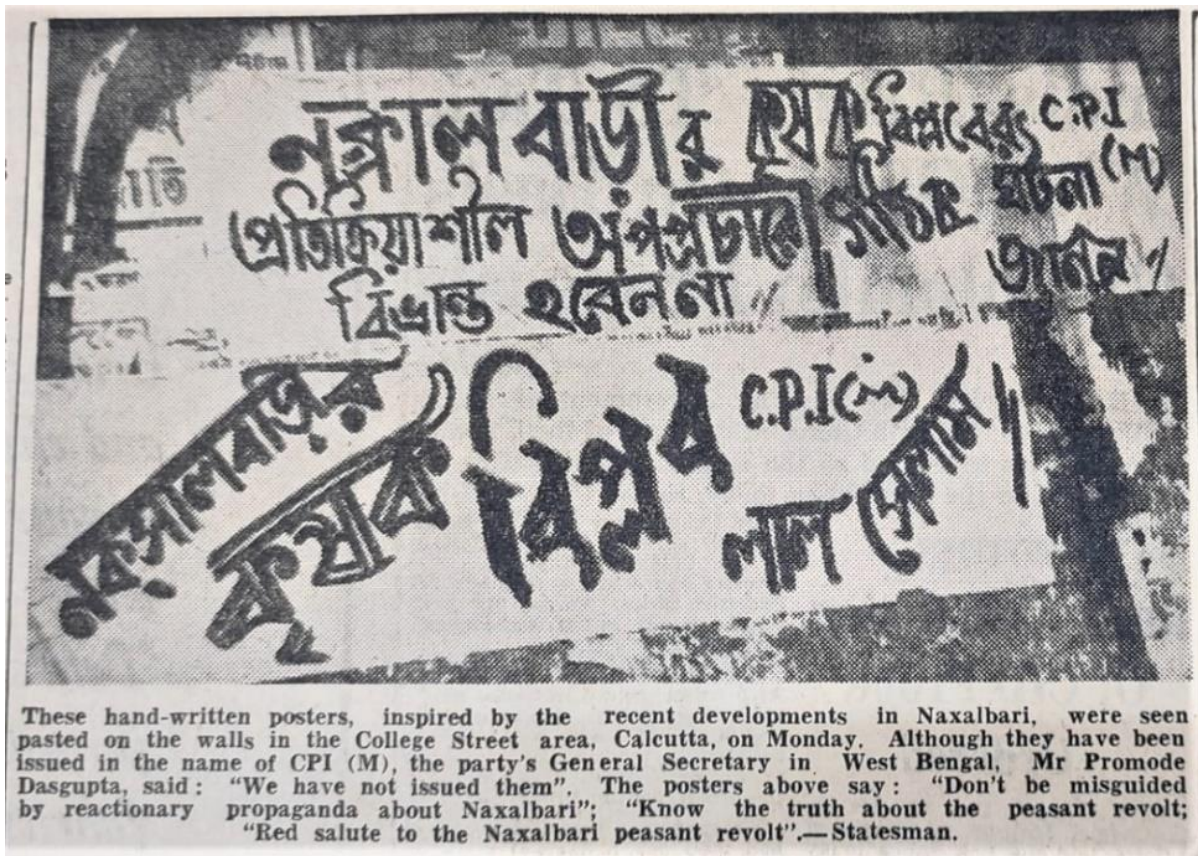 নক্সালবাড়ীর কৃষক বিপ্লবের C.P.I (M)
প্রতিক্রিয়াশীল অপপ্রচারে সঠিক ঘটনা
বিভ্রান্ত হবেননা // জানুন //
নকসালবাড়ির
কৃষক বিপ্লব C.P.I(M)
লাল সেলাম ॥
These hand-written posters, inspired by the recent developments in Naxalbari, were seen
pasted on the walls in the College Street area, Calcutta, on Monday. Although they have been
issued in the name of CPI (M), the party's General Secretary in West Bengal, Mr Promode
Dasgupta, said: "We have not issued them". The posters above say: "Don't be misguided
by reactionary propaganda about Naxalbari"; "Know the truth about the peasant revolt;
"Red salute to the Naxalbari peasant revolt".—Statesman.